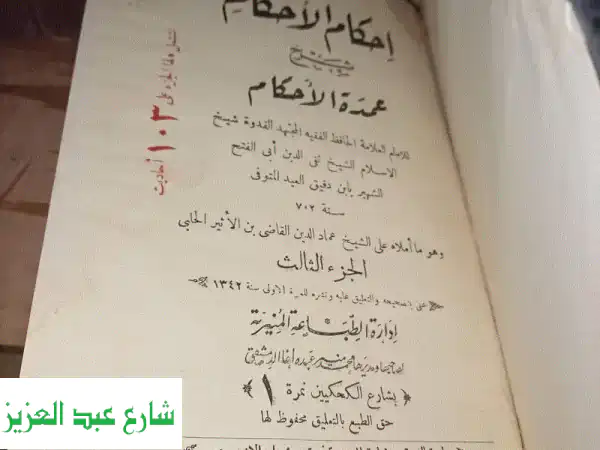 إحكام الأحكام
بشرح
عمدة الأحكام
للامام العلامة الحافظ الفقيه المجتهد القدوة شيخ
الاسلام الشيخ تقى الدين أبى الفتح
الشهير بابن دقيق العيد المتوفى
سنة ٧٠٢
وهو ما أملاه على الشيخ عماد الدين القاضى بن الأثير الحلبى
الجزء الثالث
عنى بتصحيحه والتعليق عليه ونشره للمرة الاولى سنة ١٣٤٢
إدارة الطباعة المنيرية
لصاحبها ومديرها محمد منير عبده اغا الدمشقى
بشارع الكحكيين نمرة ١
حق الطبع بالتعليق محفوظ لها
١٠٣ أحاديث
شارع عبد العزيز